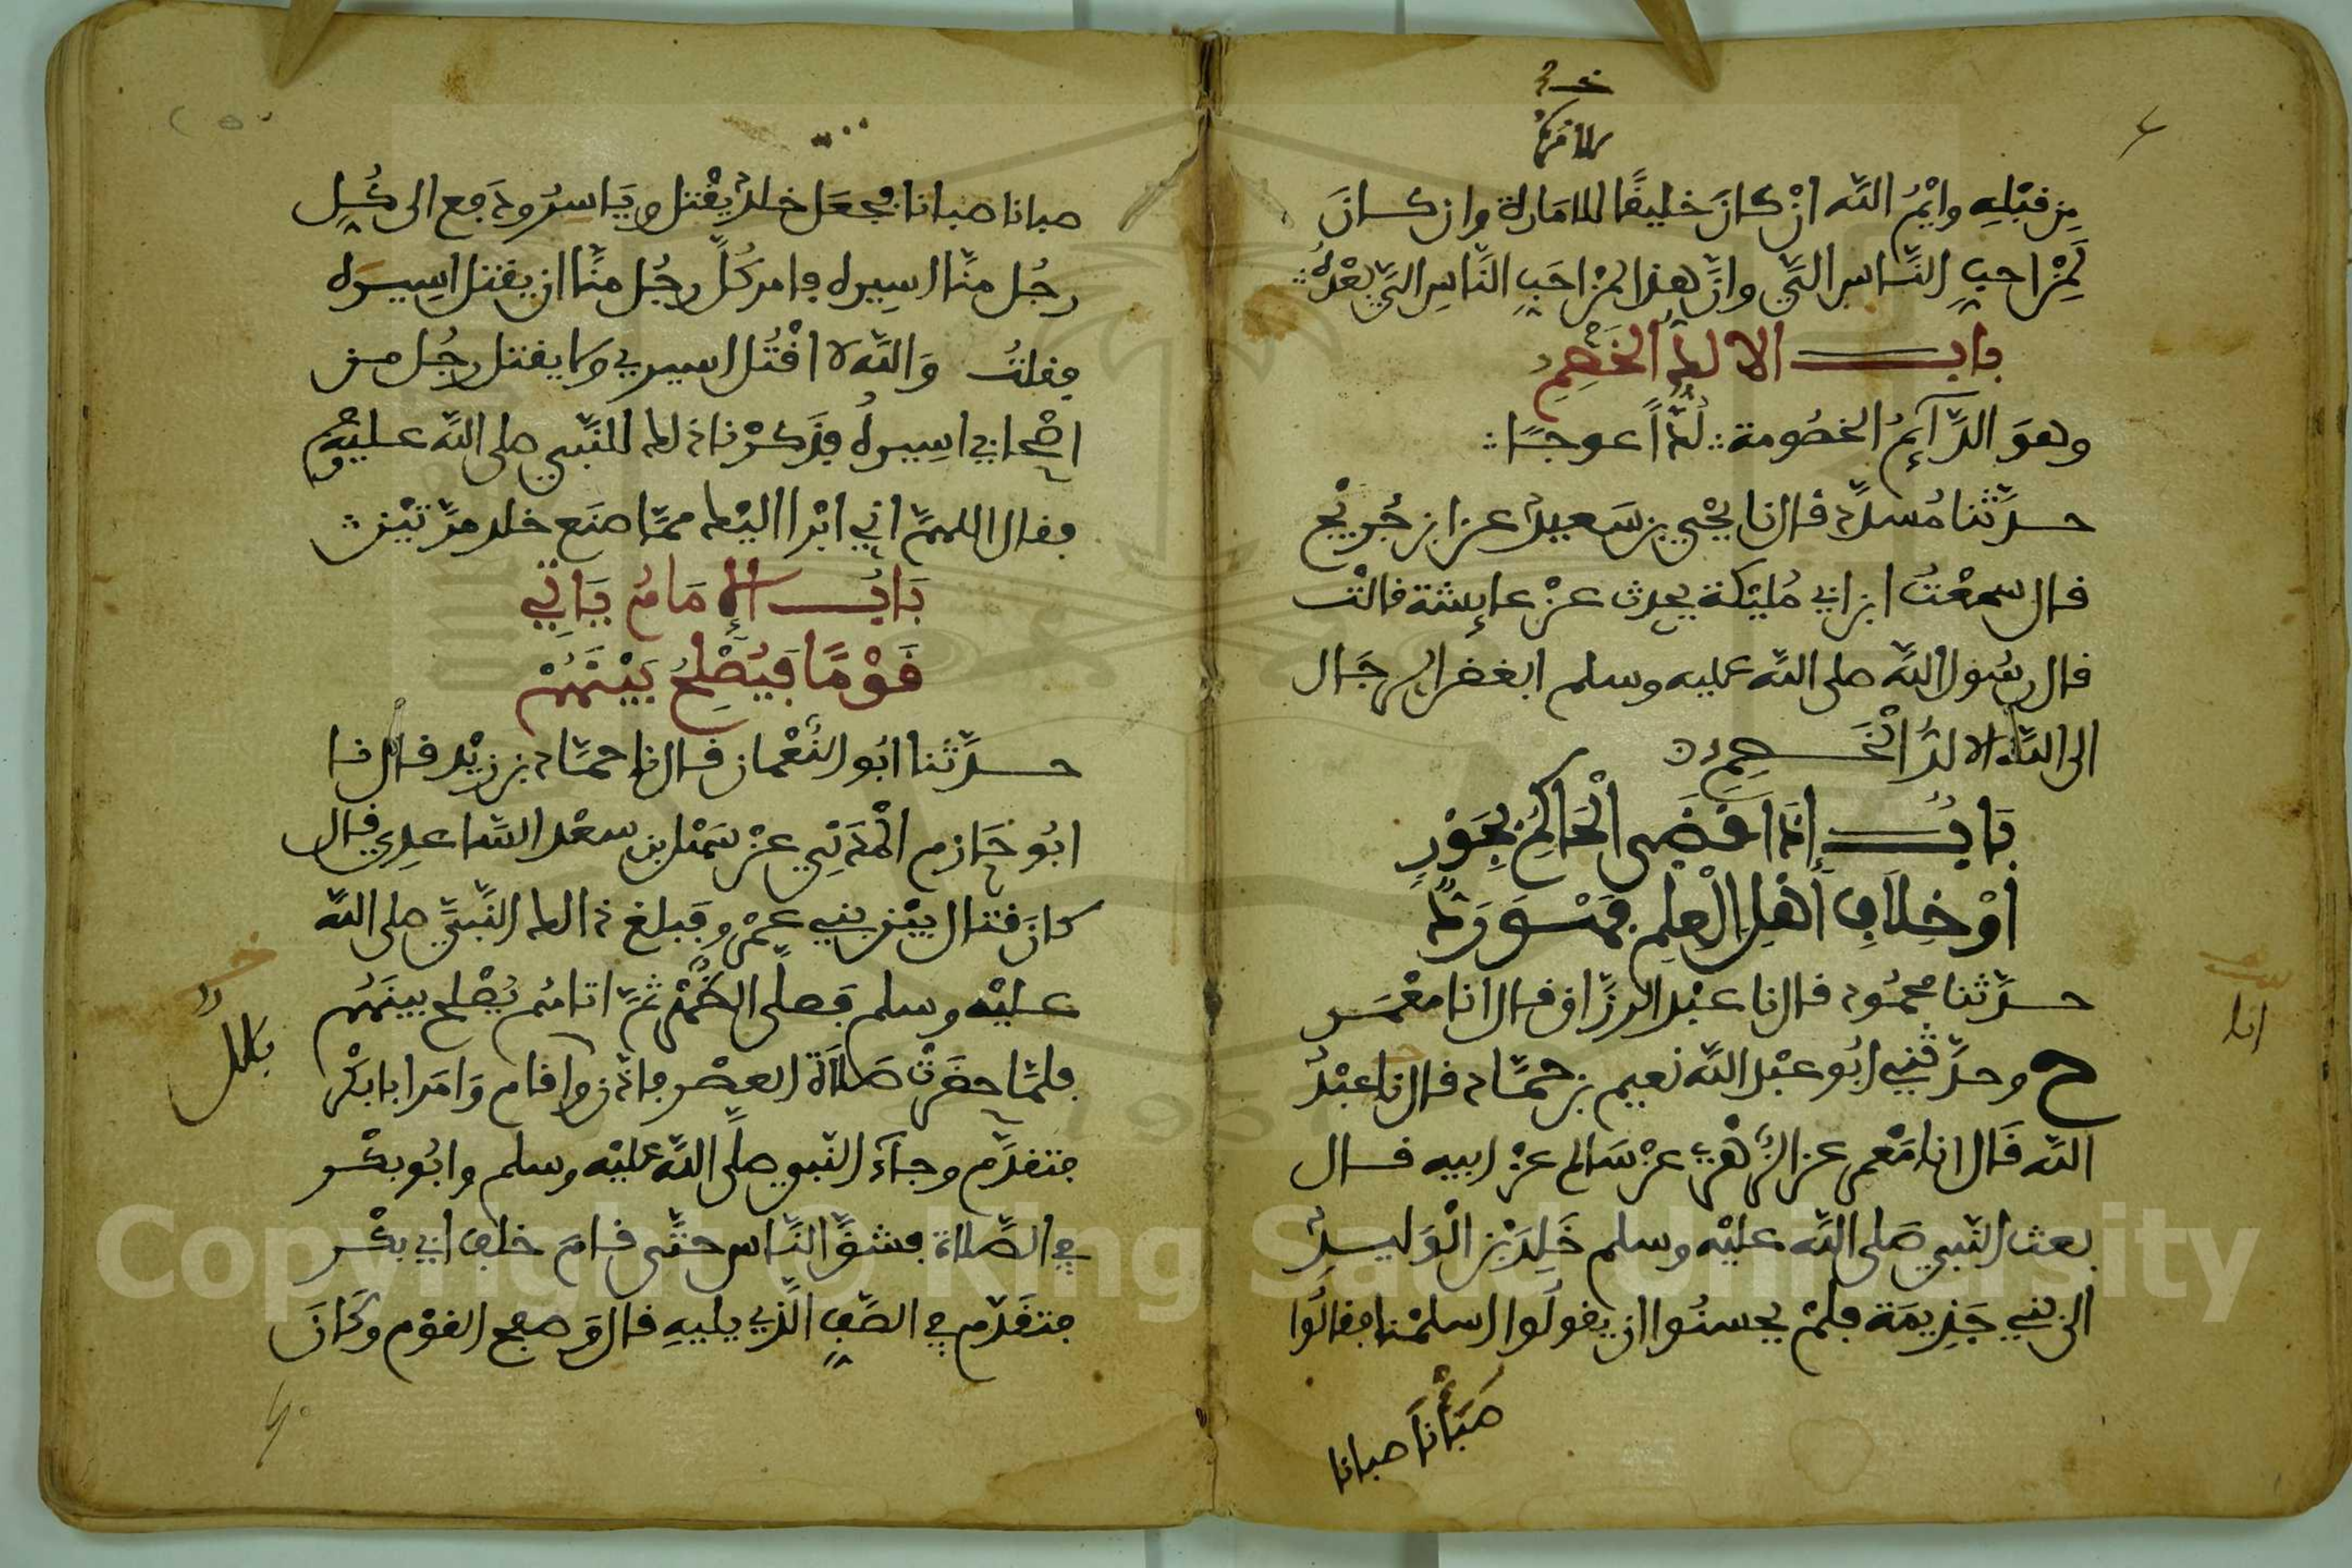 خـ
للامرة
من قبله وايم الله ان كان خليقا للامارة وان كان
لمن احب الناس الي وان هذا لمن احب الناس الي بعده
باب الالد الخصم
وهو الدآئم الخصومة لدا عوجا
حدثنا مسدد قال نا يحيى بن سعيد عن ابن جريج
قال سمعت ابن ابي مليكة يحدث عن عايشة قالت
قال رسول الله صلى الله عليه وسلم ابغض الرجال
الى الله الالد الخصم
باب اذا قضى الحاكم بجور
او خلاف اهل العلم فهو رد
حدثنا محمود قال نا عبد الرزاق قال انا معمر
انا
ح وحدثني ابو عبد الله نعيم بن حماد قال نا عبد
الله قال انا معمر عن الزهري عن سالم عن ابيه قال
بعث النبي صلى الله عليه وسلم خلد بن الوليد
الى بني جذيمة فلم يحسنوا ان يقولوا اسلمنا فقالوا
صبأنا صبانا
صبانا صبانا فجعل خلد يقتل وياسر ودفع الى كل
رجل منا اسيره فامر كل رجل منا ان يقتل اسيره
فقلت والله لا اقتل اسيري ولا يقتل رجل من
اصحابي اسيره فذكرنا ذلك للنبي صلى الله عليه وسلم
فقال اللهم اني ابرا اليك مما صنع خلد مرتين
باب الإمام ياتي
قوما فيصلح بينهم
حدثنا ابو النعمان قال نا حماد بن زيد قال نا
ابو حازم المدني عن سهل بن سعد الساعدي قال
كان قتال بين بني عمرو فبلغ ذالك النبي صلى الله
عليه وسلم فصلى الظهر ثم اتاهم يصلح بينهم
فلما حضرت صلاة العصر فاذن وا قام وامر ابا بكر
بلال
فتقدم وجآء النبي صلى الله عليه وسلم وابو بكر
في الصلاة فشق الناس حتى قام خلف ابي بكر
فتقدم في الصف الذي يليه قال وصفح القوم وكان
Copyright © King Saud University
1957